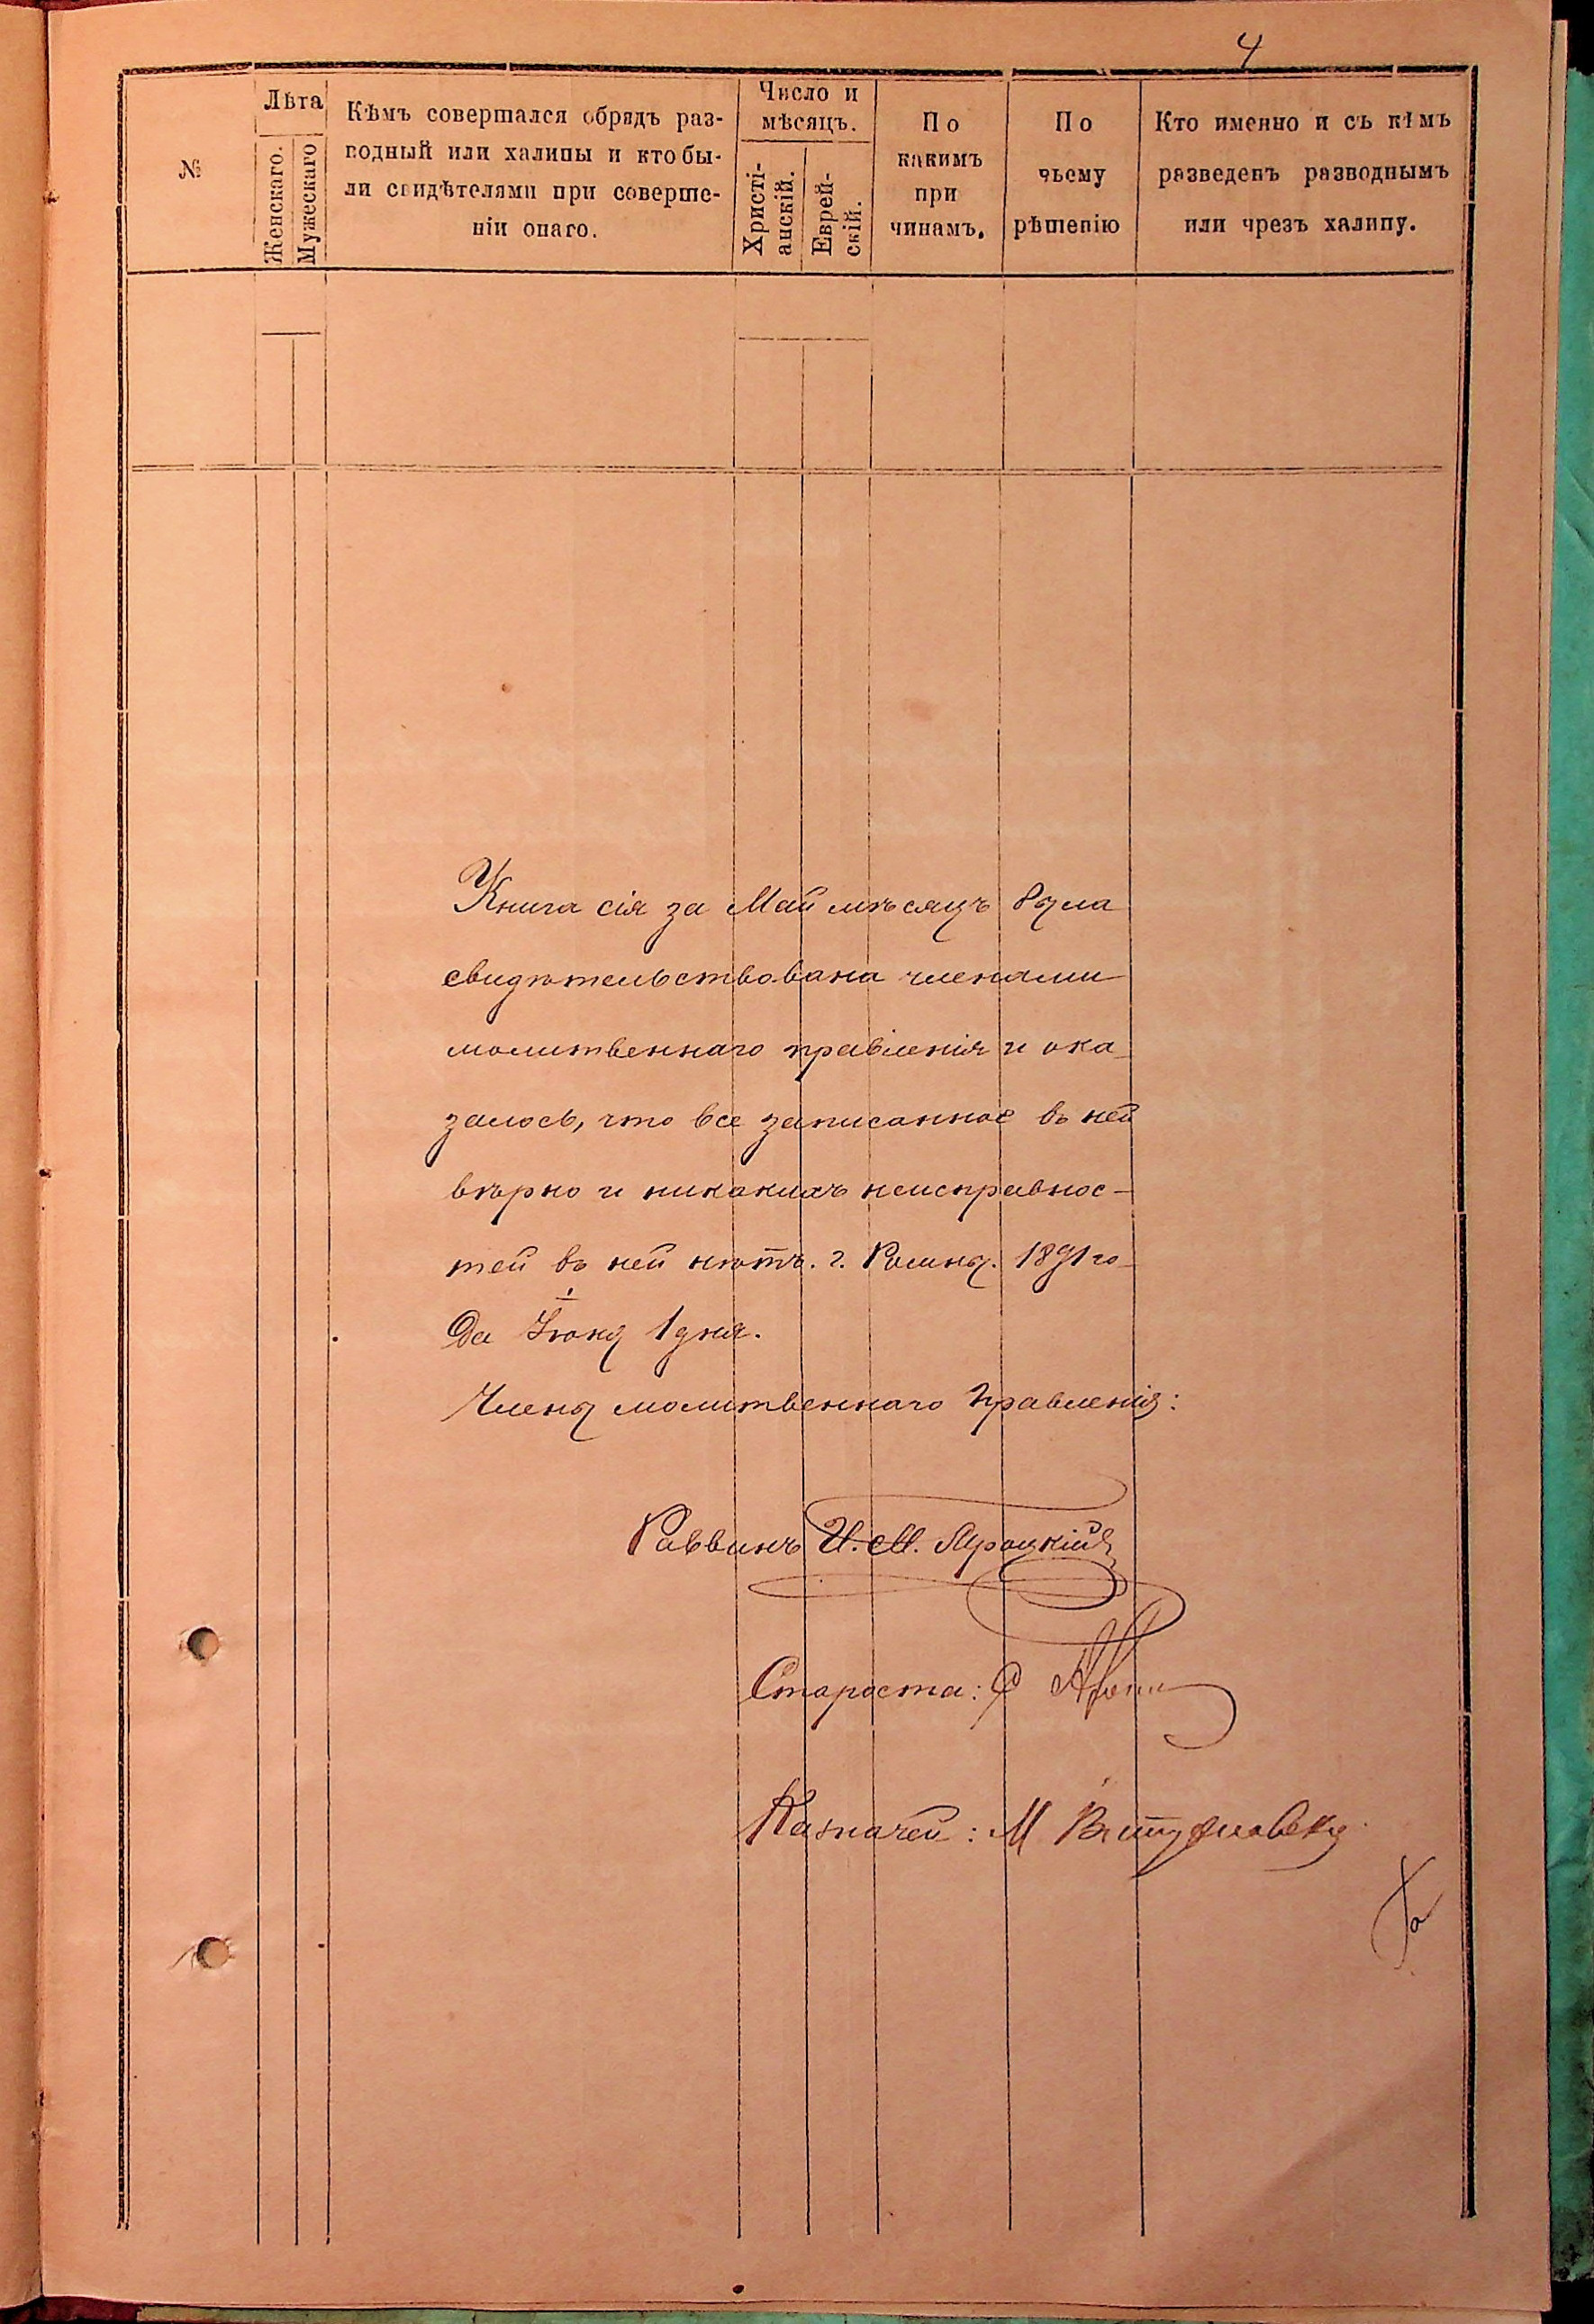 4
№
Лѣта
Женскаго.
Мужескаго
Кѣмъ совершался обрядъ раз-
водный или халицы и кто бы-
ли свидѣтелями при соверше-
ніи онаго.
Число и
мѣсяцъ.
Христі-
анскій.
Еврей-
скій.
По
какимъ
при
чинамъ.
По
чьему
рѣшенію
Кто именно и съ кѣмъ
разведенъ разводнымъ
или чрезъ халицу.
Книга сія за Май мѣсяцъ была
свидѣтельствована членами
молитвеннаго правленія и ока-
залось, что все записанное въ ней
вѣрно и никакихъ неисправнос-
тей въ ней нѣтъ. г. Ромны. 1891 го-
да Іюня 1 дня.
Члены молитвеннаго Правленія:
Раввинъ И. М. Яроцкій
Староста:
Казначей: М